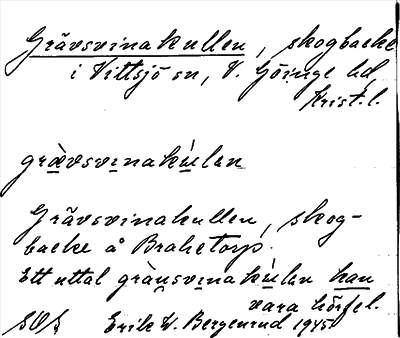 Grävsvinakullen, skogbacke
i Vittsjö sn, V. Göinge hd,
Krist. l.
grävsvinakúlan
Grävsvinakullen, skog-
backe å Braketorp.
Ett uttal gräusvinakúlan kan
vara hörfel.
Erik W. Bergenrud 1945